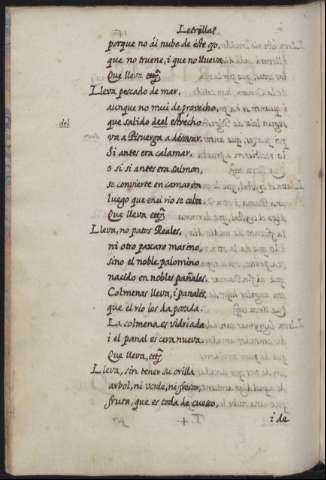 Letrillas
porque no ái nube de éste ço,
que no truene, i que no llueva.
Que lleva &tç
Lleva pescado de mar,
aunque no mui de provecho,
que salido del estrecho
del
va a Pisuerga a desovar.
Si antes era calamar,
o si antes era salmon,
se convierte en camaron
luego que en el rio se ceba.
Que lleva &tç
Lleva, no patos Reales,
ni otro paxaro marino,
sino el noble palomino
nacido en nobles pañales.
Colmenas lleva, i panales,
que el rio les da posada.
La colmena es vidriada,
i el panal es cera nueva.
Que lleva, &tç
Lleva, sin tener su orilla
arbol, ni verde, ni fresco,
fruta, que es toda de cuesco,
i de